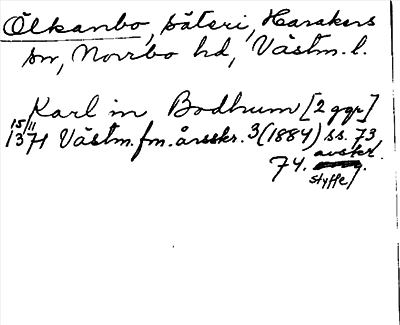 Ölkanbo, säteri, Harakers
sn, Norrbo hd, Västm. l.
Karl in Bodhum [2 ggr]
15/11
1371 Västm. fm. årsskr. 3 (1884) ss. 73
74. avskr.
Styffe